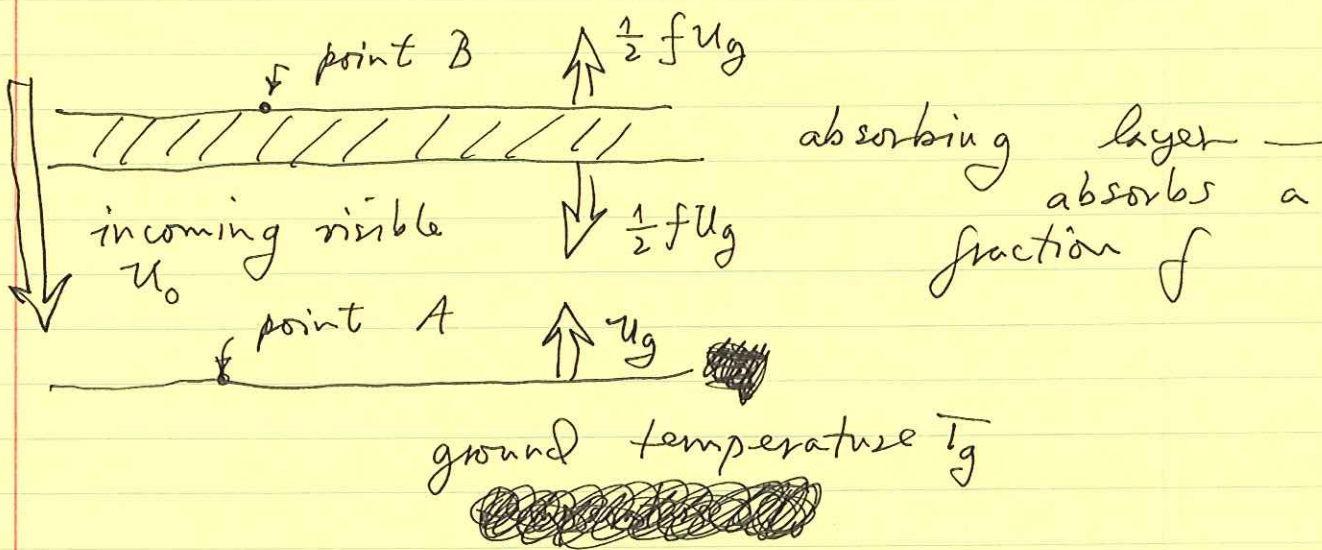 point B
½ f u_g
absorbing layer —
absorbs a
fraction f
incoming visible
u_0
½ f u_g
point A
u_g
ground temperature T_g